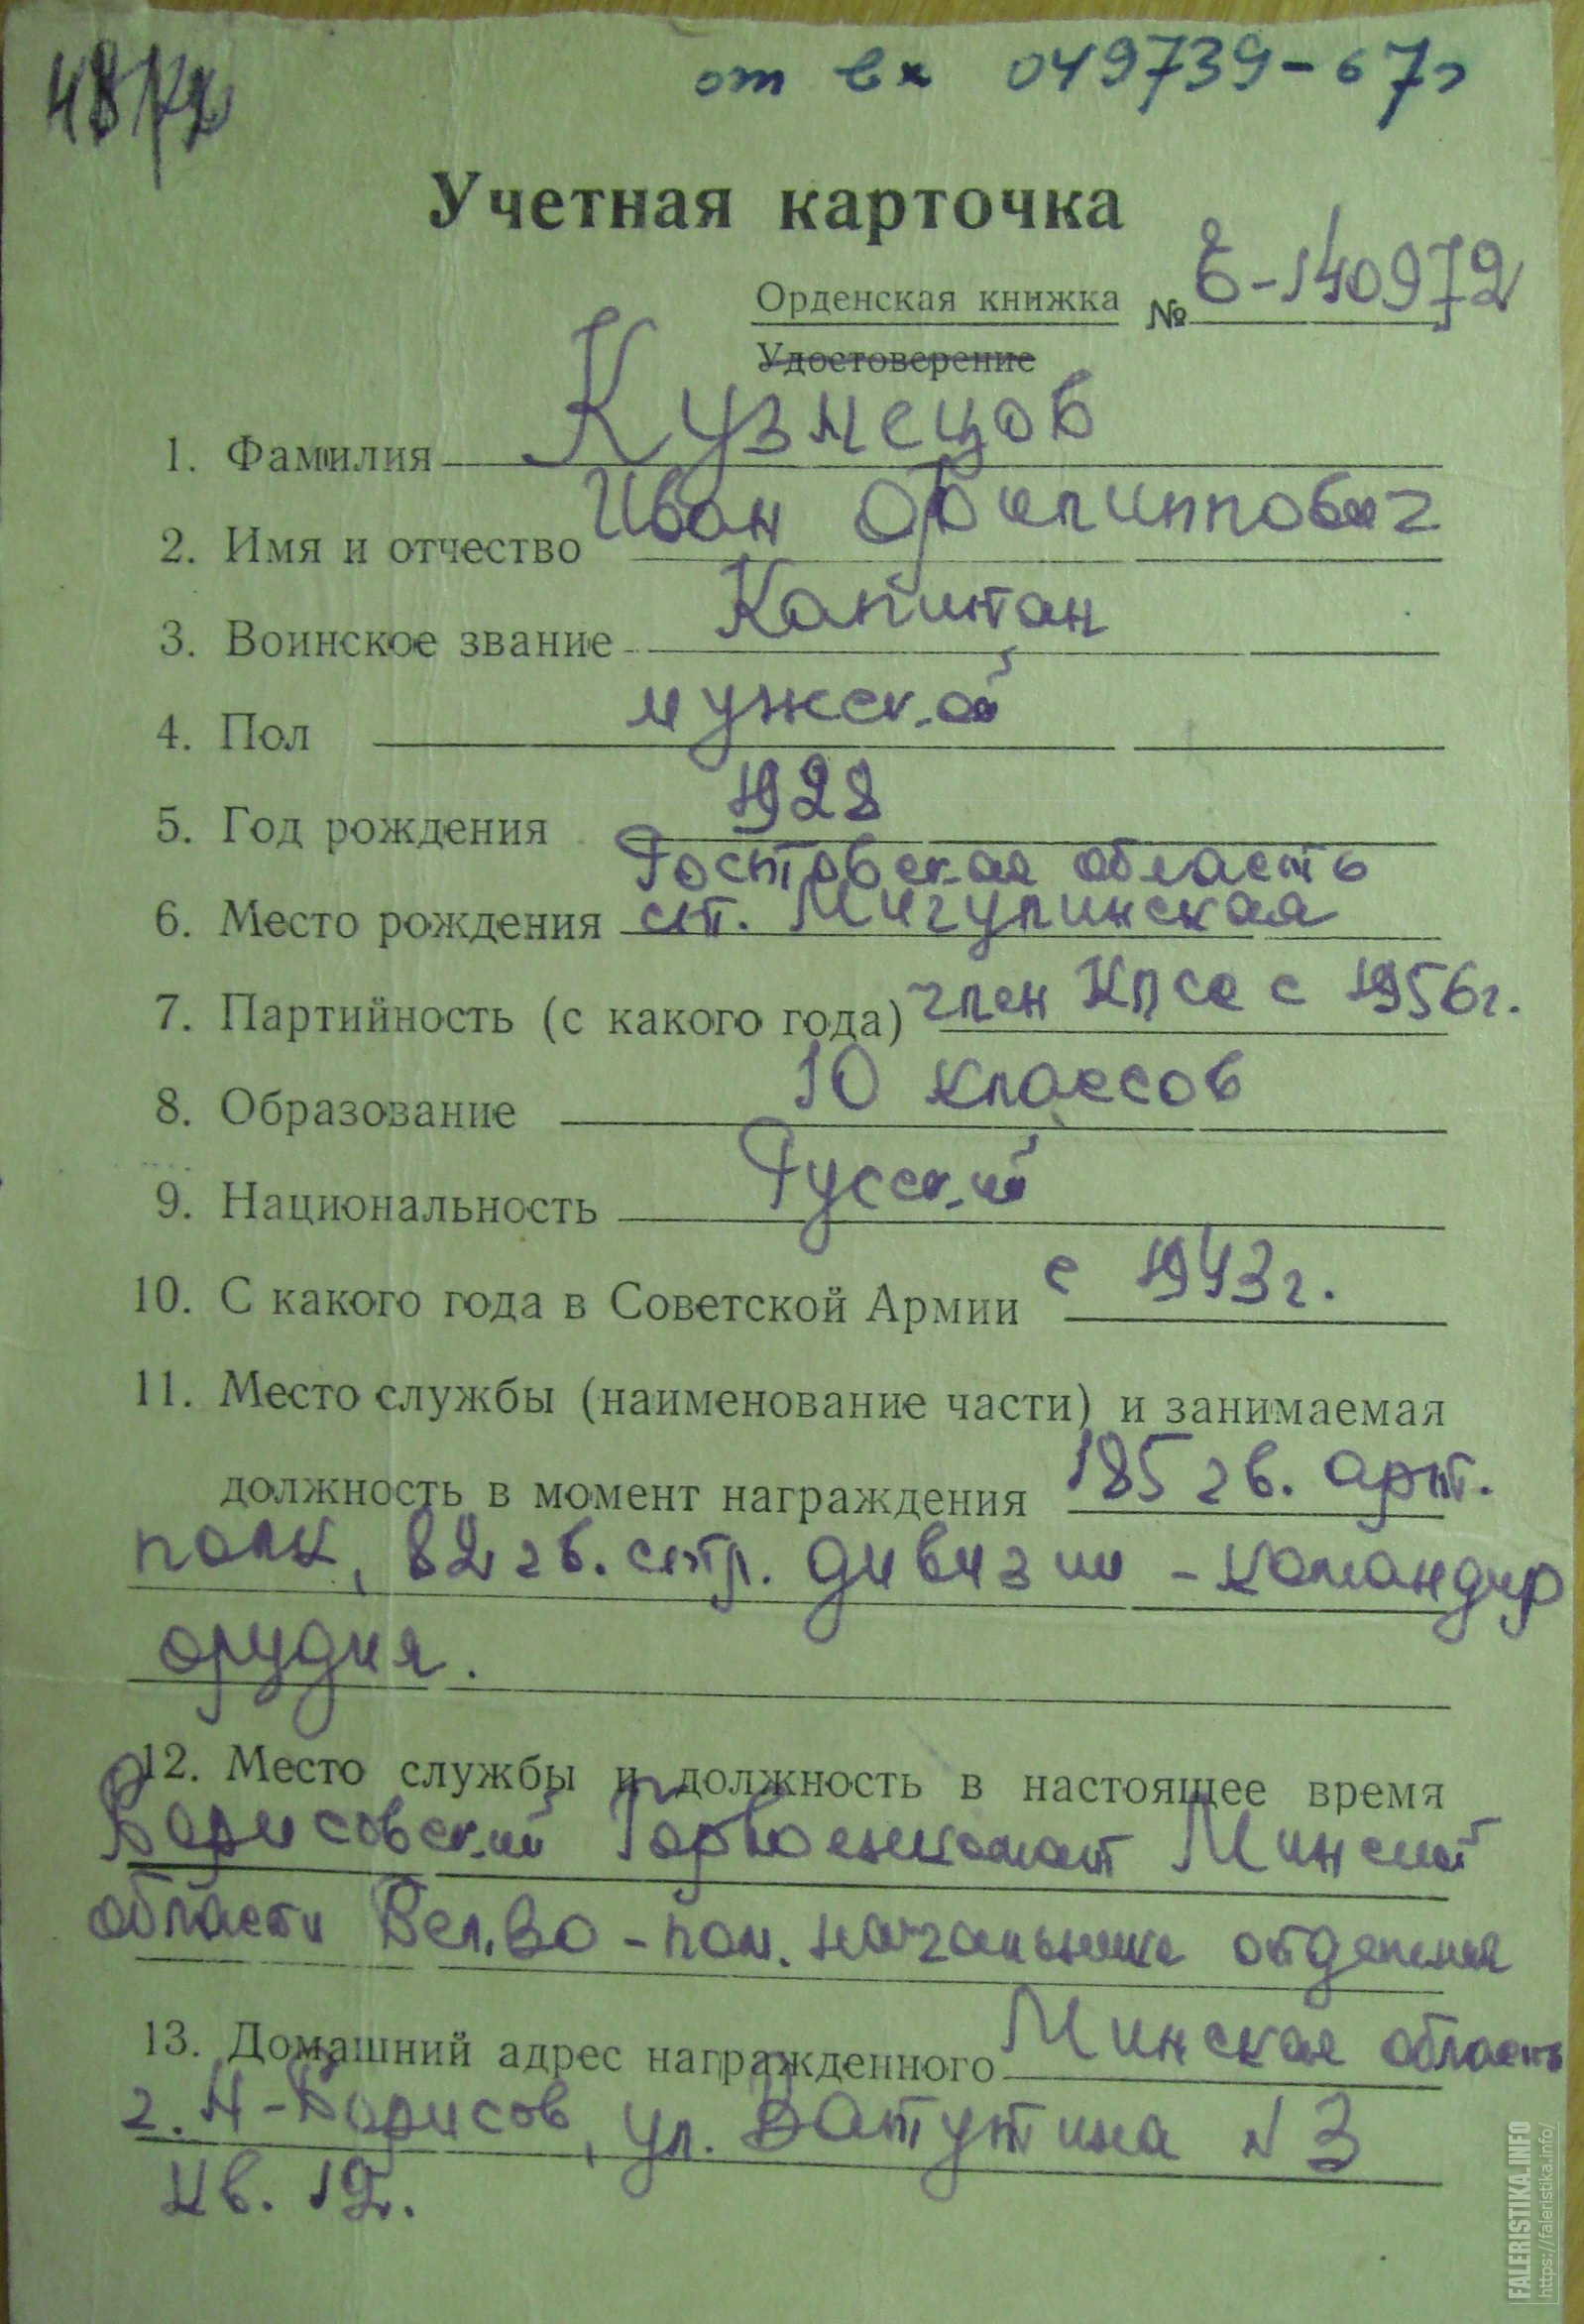 от вх 049739-67г
Учетная карточка
Орденская книжка № Е-140972
Удостоверение
1. Фамилия Кузнецов
2. Имя и отчество Иван Филиппович
3. Воинское звание Капитан
4. Пол мужской
5. Год рождения 1928
Ростовская область
6. Место рождения ст. Мигулинская
7. Партийность (с какого года) член КПСС с 1956г.
8. Образование 10 классов
9. Национальность Русский
10. С какого года в Советской Армии с 1943г.
11. Место службы (наименование части) и занимаемая
должность в момент награждения 185 гв. арт.
полк, 82 гв. стр. дивизии - командир
орудия.
12. Место службы и должность в настоящее время
Борисовский Горвоенкомат Минской
области Бел.ВО - пом. начальника отделения
13. Домашний адрес награжденного Минская область
г. Н-Борисов, ул. Ватутина N 3
кв. 12.
FALERISTIKA.INFO
https://faleristika.info/